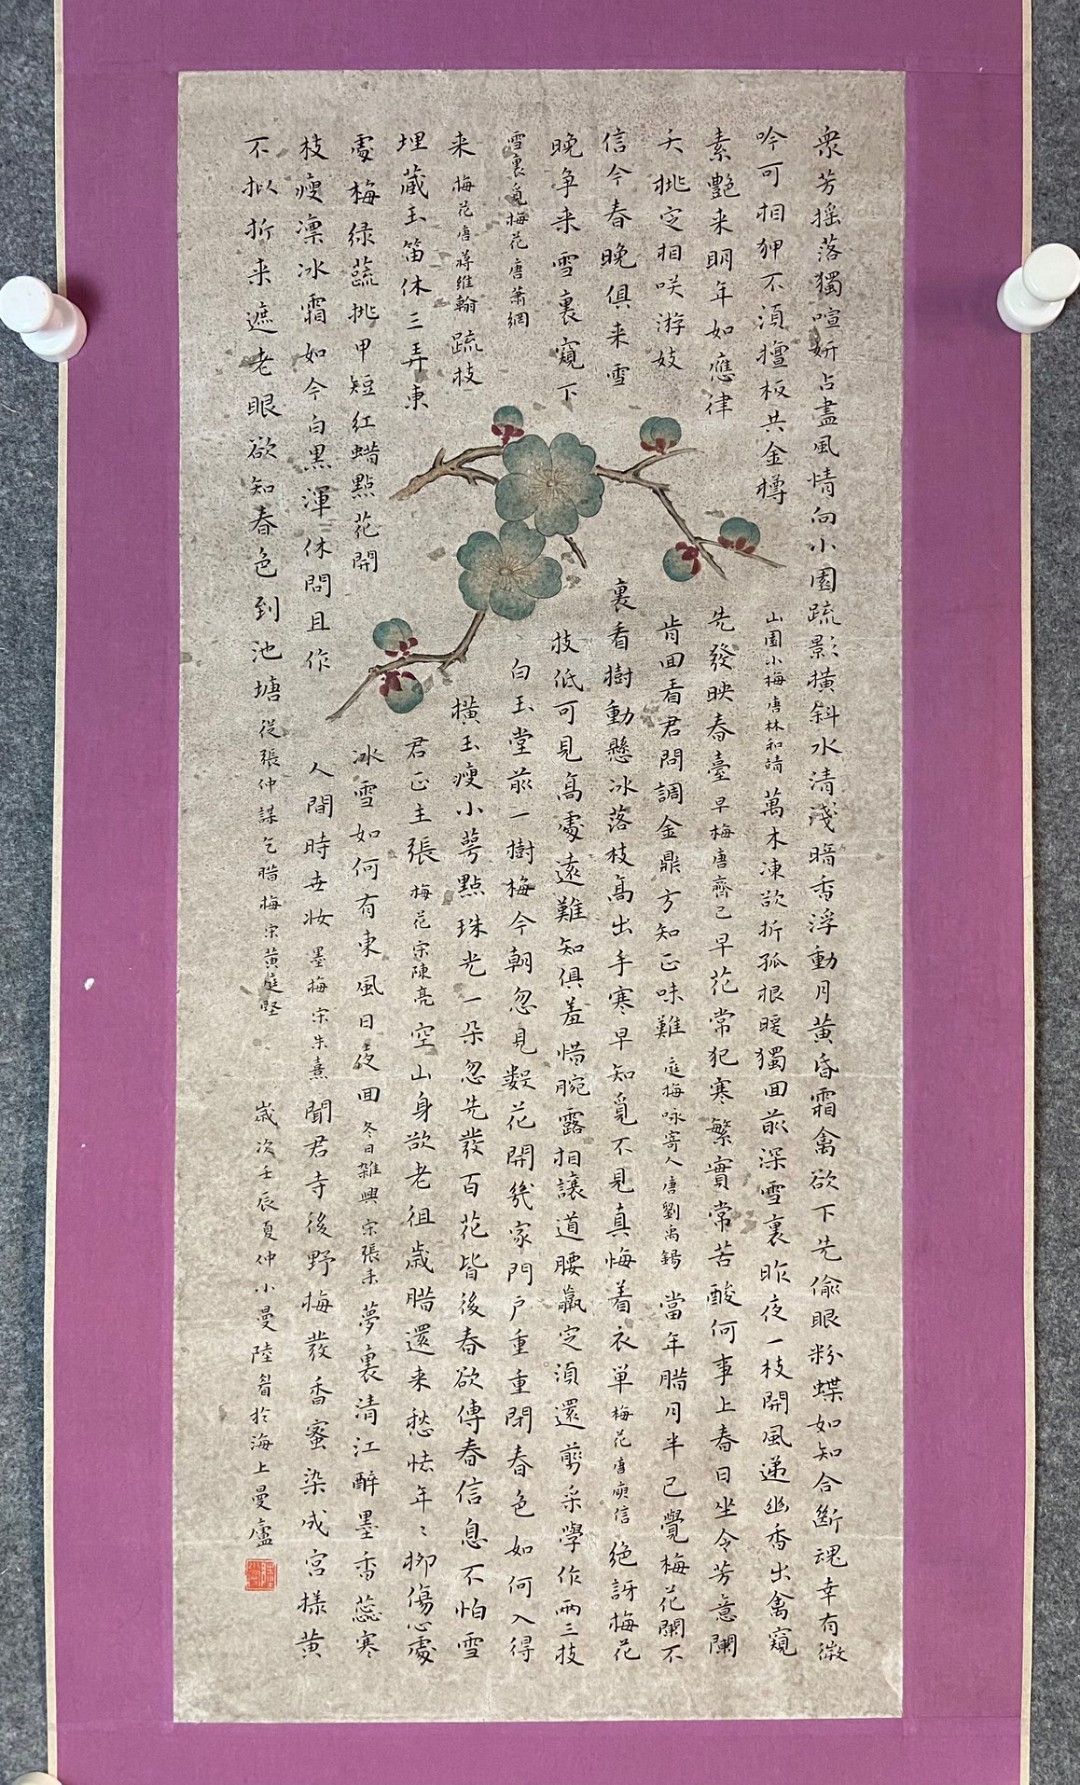 衆芳摇落獨喧妍占盡風情向小園疏影橫斜水清淺暗香浮動月黄昏霜禽欲下先偷眼粉蝶如知合斷魂幸有微
吟可相狎不須檀板共金樽山園小梅唐林和靖萬木凍欲折孤根暖獨回前深雪裏昨夜一枝開風递幽香出禽窺
素艷来明年如應律先發映春臺早梅唐齊己早花常犯寒繁實常苦酸何事上春日坐令芳意闌
夭桃定相咲游妓肯回看君問調金鼎方知正味難庭梅咏寄人唐劉禹錫當年腊月半已覺梅花闌不
信今春晚俱来雪裏看樹動懸冰落枝高出手寒早知覓不見真悔着衣単梅花唐庾信絶訝梅花
晚争来雪裏窺下枝低可見高處遠難知俱羞惜腕露相讓道腰羸定須還剪采學作兩三枝
雪裏覓梅花唐蕭綱白玉堂前一樹梅今朝忽見數花開幾家門户重重閉春色如何入得
来梅花唐蒋維翰疏枝橫玉瘦小萼點珠光一朵忽先發百花皆後春欲傳春信息不怕雪
埋藏玉笛休三弄東君正主張梅花宋陳亮空山身欲老徂歲腊還来愁怯年〻柳傷心處
處梅绿蔬挑甲短红蜡點花開冰雪如何有東風日夜回冬日雜興宋張耒夢裏清江醉墨香蕊寒
枝瘦凛冰霜如今白黑渾休問且作人間時世妝墨梅宋朱熹聞君寺後野梅發香蜜染成宫樣黄
不拟折来遮老眼欲知春色到池塘從張仲謀乞腊梅宋黄庭堅歲次壬辰夏仲小曼陸眉於海上曼廬